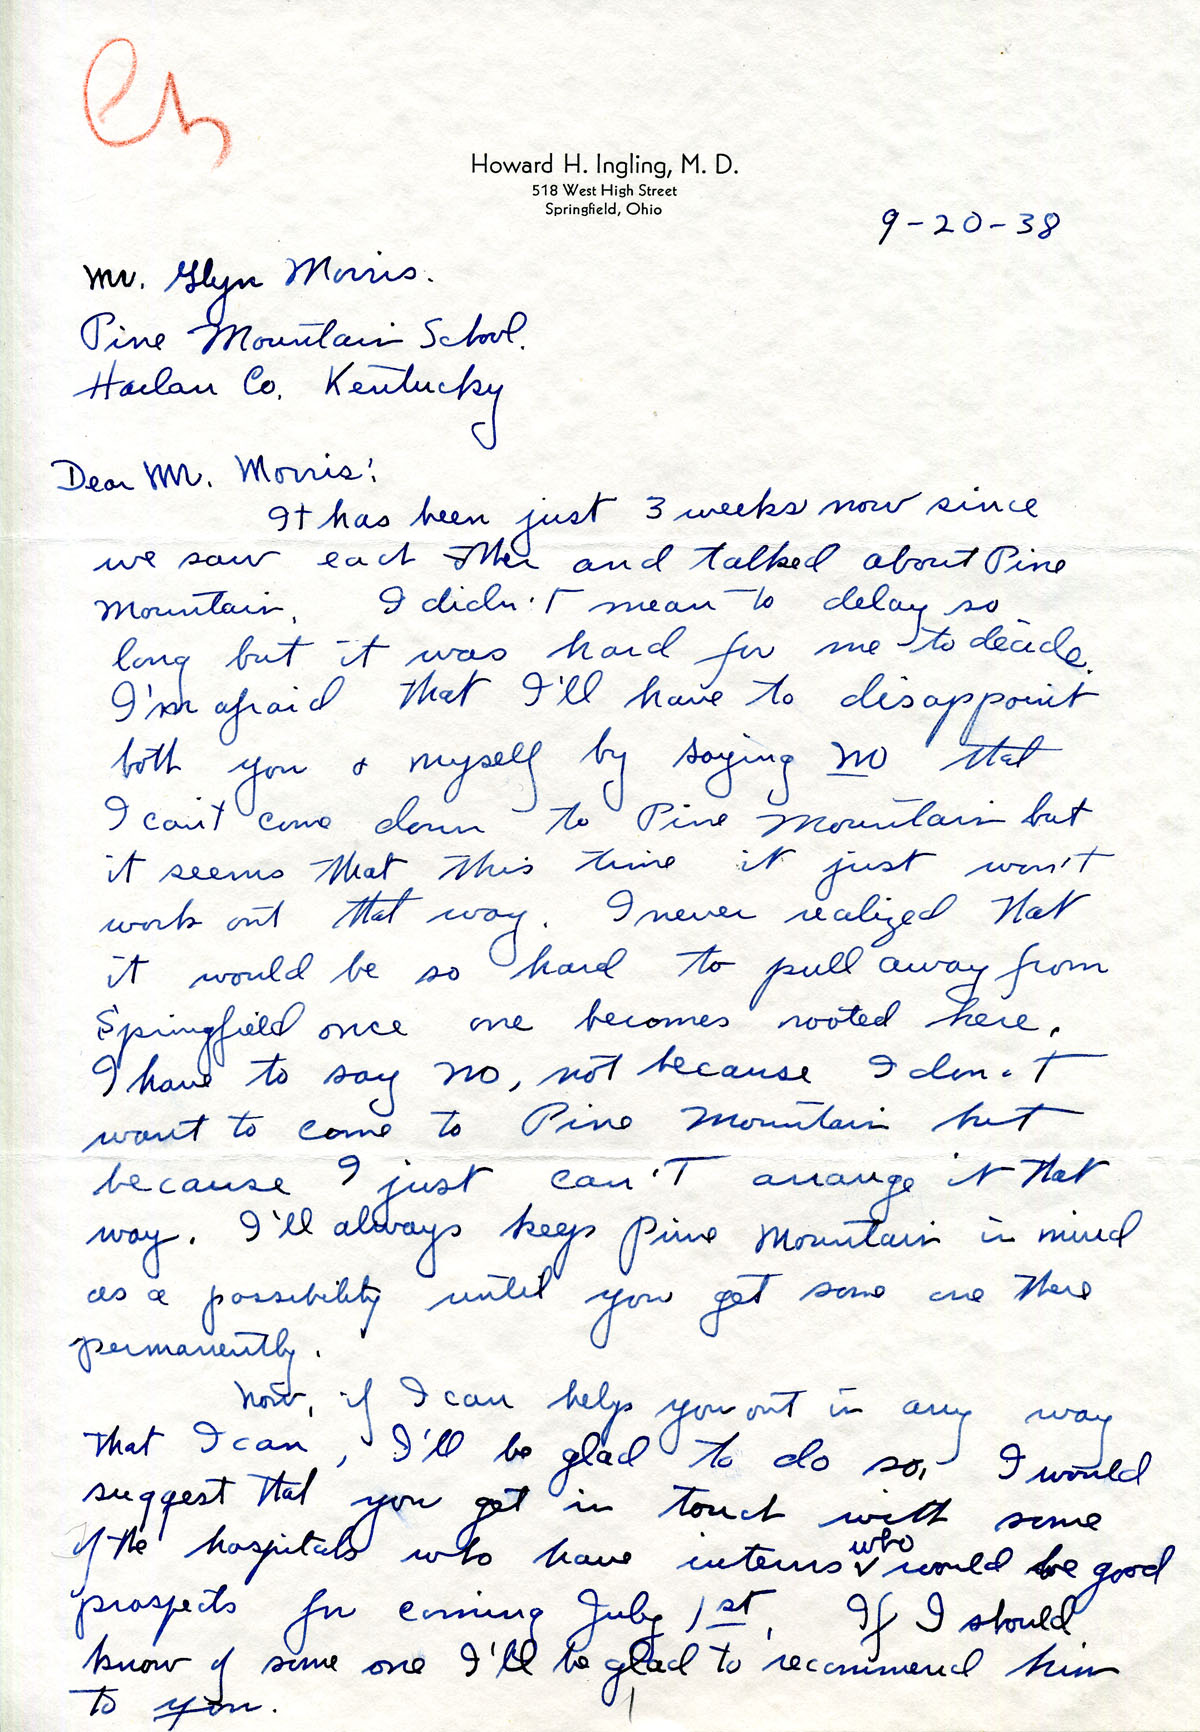 Howard H. Ingling, M. D.
518 West High Street
Springfield, Ohio
9-20-38
Mr. Glyn Morris.
Pine Mountain School.
Harlan Co. Kentucky
Dear Mr. Morris:
It has been just 3 weeks now since
we saw each other and talked about Pine
Mountain. I didn't mean to delay so
long but it was hard for me to decide.
I'm afraid that I'll have to disappoint
both you & myself by saying no that
I can't come down to Pine Mountain but
it seems that this time it just won't
work out that way. I never realized that
it would be so hard to pull away from
Springfield once one becomes rooted here.
I have to say no, not because I don't
want to come to Pine Mountain but
because I just can't arrange it that
way. I'll always keep Pine Mountain in mind
as a possibility until you get some one there
permanently.
Now, if I can help you out in any way
that I can, I'll be glad to do so. I would
suggest that you get in touch with some
of the hospitals who have interns who would be good
prospects for coming July 1st. If I should
know of some one I'll be glad to recommend him
to you.